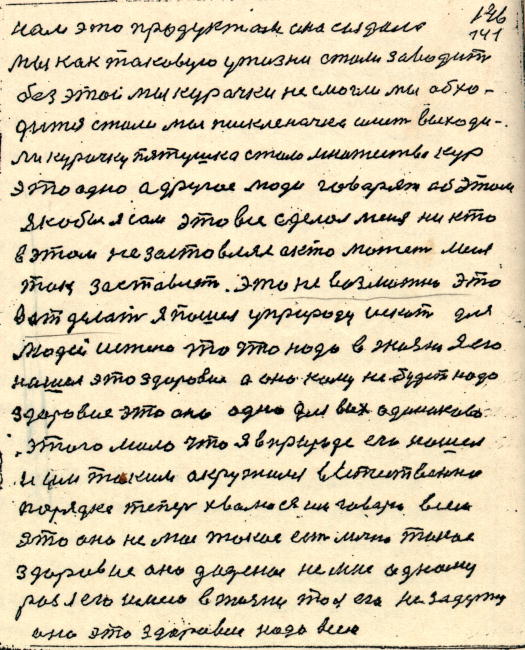 146
141
нам это продуктам она создала
мы как таковую у жизни стали заводить
без этой мы курачки не смогли мы абхо-
дится стали мы
ли курачку пятушка стало множество кур
это адно а другое люди говарят об этом
якобы я сам это все сделал меня ни кто
в этом не заставлял а кто может меня
так заставлят. это не возможно это
вот делат я пошел у природу искат для
людей истено то что надо в жизни я его
нашел это здоровие а оно кому не будет надо
здаровие это оно одно для всех одинаково
. этого мало что я в природе его нашел
и им таким окружился в естественно
порядке тепер хвалюся им говорю всем
это оно не мое такое ест лично такое
здаровие оно даденое не мне адному
раз я его имею в жизни то я его не задержу
оно это здаровие надо всем